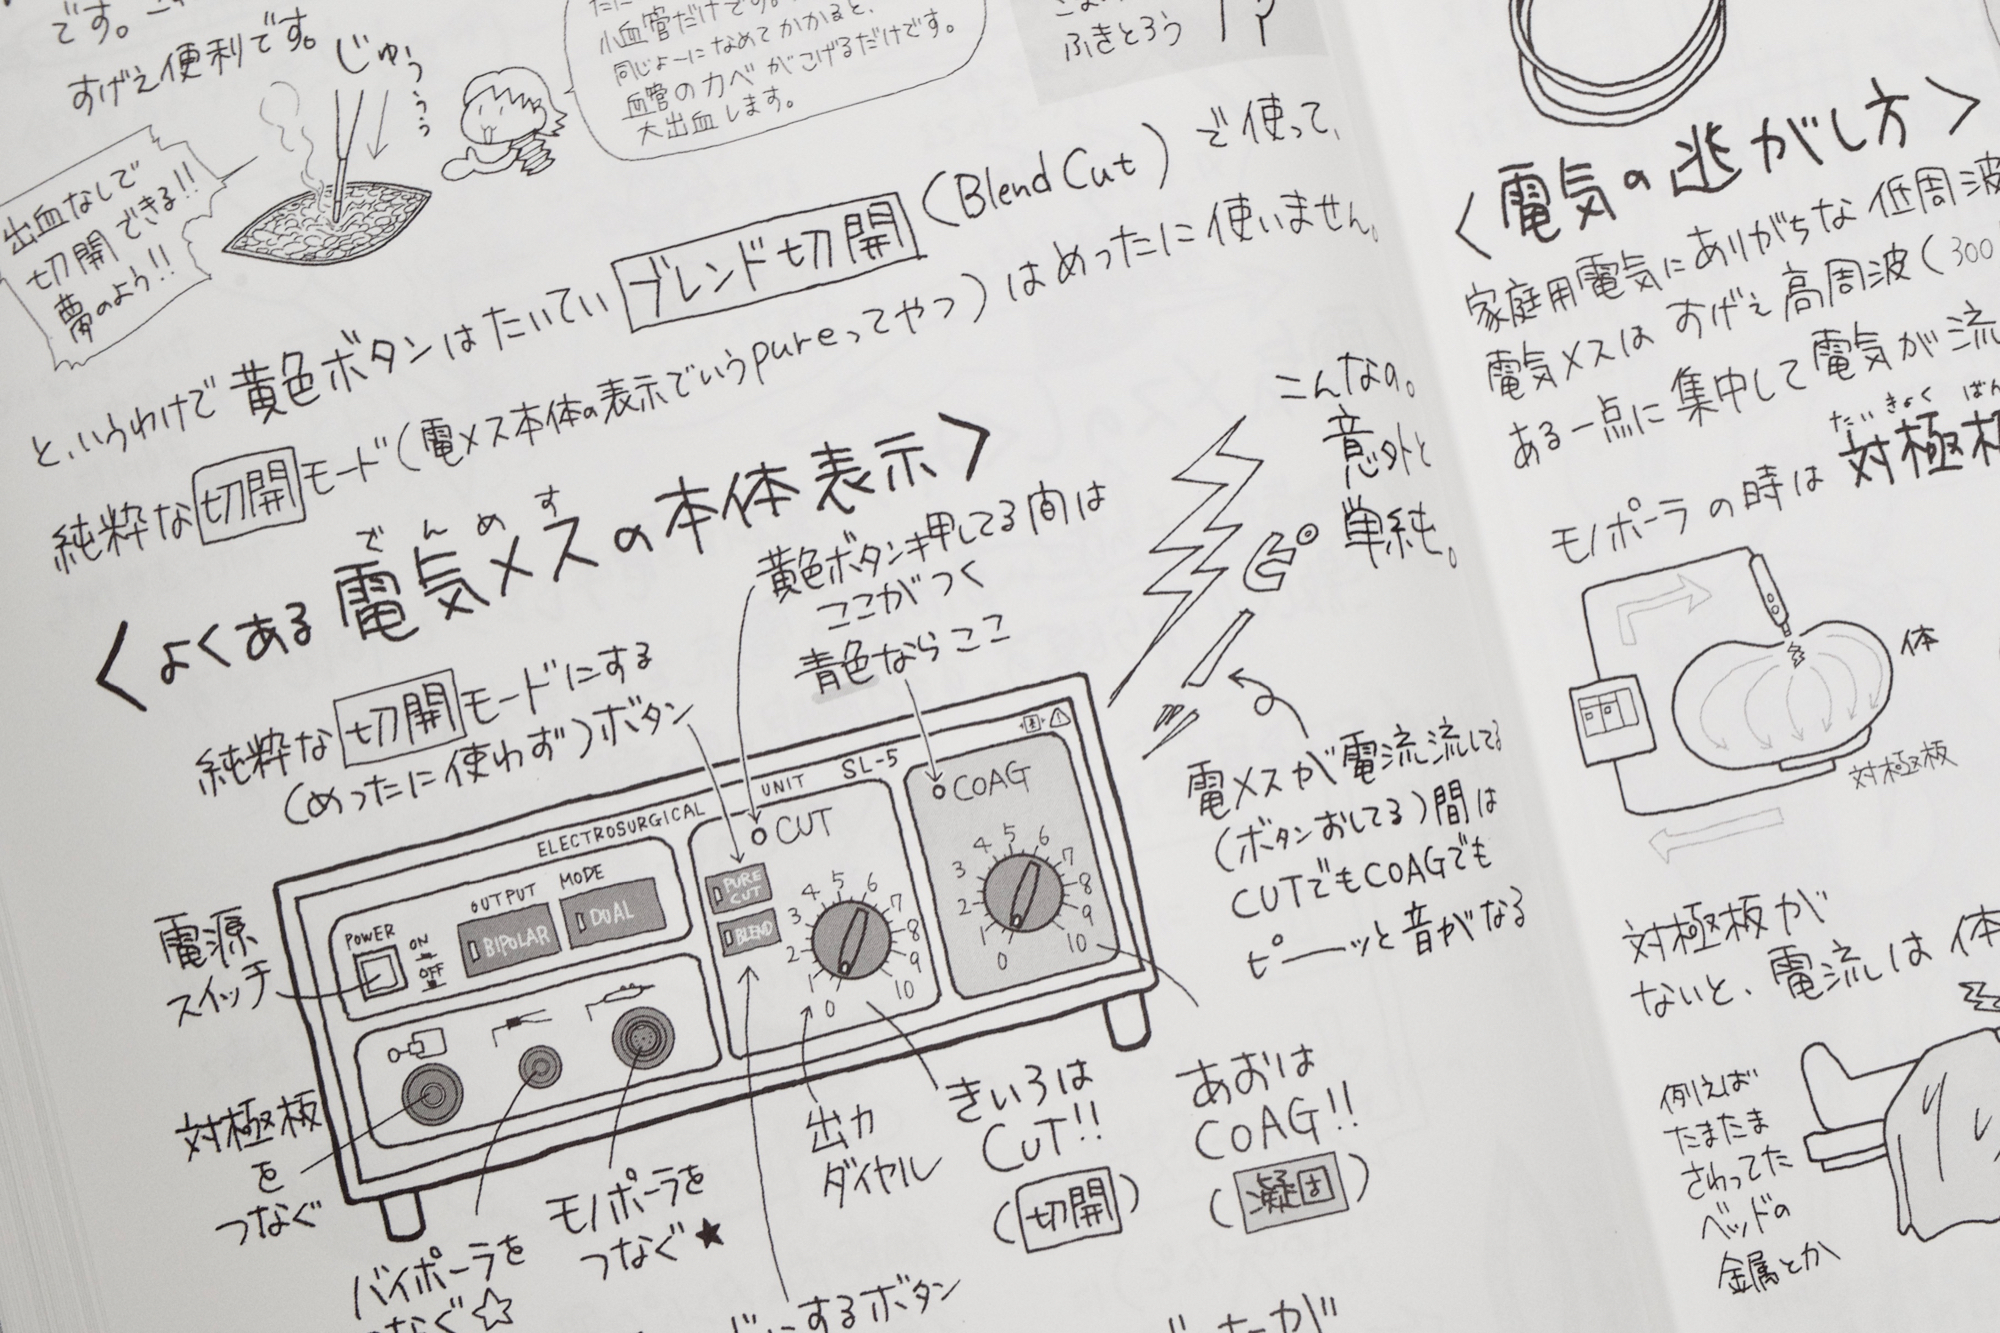 です。
すげえ便利です。
じゅううぅ
出血なしで
切開できる!!
夢のよう!!
小血管だけです。
同じよーになめてかかると、
血管のカベがこげるだけです。
大出血します。
ふきとろう
と、いうわけで黄色ボタンはたいていブレンド切開(Blend Cut)で使って、
純粋な切開モード(電メス本体の表示でいうpureってやつ)はめったに使いません。
<よくある電気メスの本体表示>
でんめす
こんなの。
意外と
単純。
純粋な切開モードにする
(めったに使わず)ボタン
黄色ボタンを押してる間は
ここがつく
青色ならここ
ピ
電メスが電流流してる
(ボタンおしてる)間は
CUTでもCOAGでも
ピーーッと音がなる
ELECTROSURGICAL UNIT SL-5
POWER
ON
OFF
OUTPUT MODE
BIPOLAR
DUAL
CUT
PURE CUT
BLEND
0 1 2 3 4 5 6 7 8 9 10
COAG
0 1 2 3 4 5 6 7 8 9 10
電源
スイッチ
対極板
を
つなぐ
バイポーラを
つなぐ☆
モノポーラを
つなぐ★
ドにするボタン
出力
ダイヤル
きいろは
CUT!!
(切開)
あおは
COAG!!
(凝固)
<電気の逃がし方>
家庭用電気にありがちな低周波
電気メスはすげえ高周波(300
ある一点に集中して電気が流
モノポーラの時は対極板
たいきょくばん
体
対極板
対極板が
ないと、電流は体
例えば
たまたま
さわってた
ベッドの
金属とか